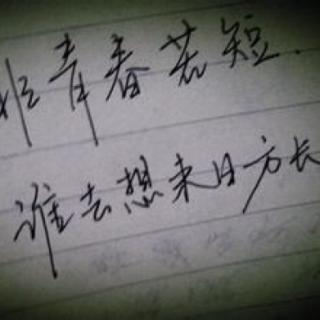 青春苦短.
谁去想来日方长